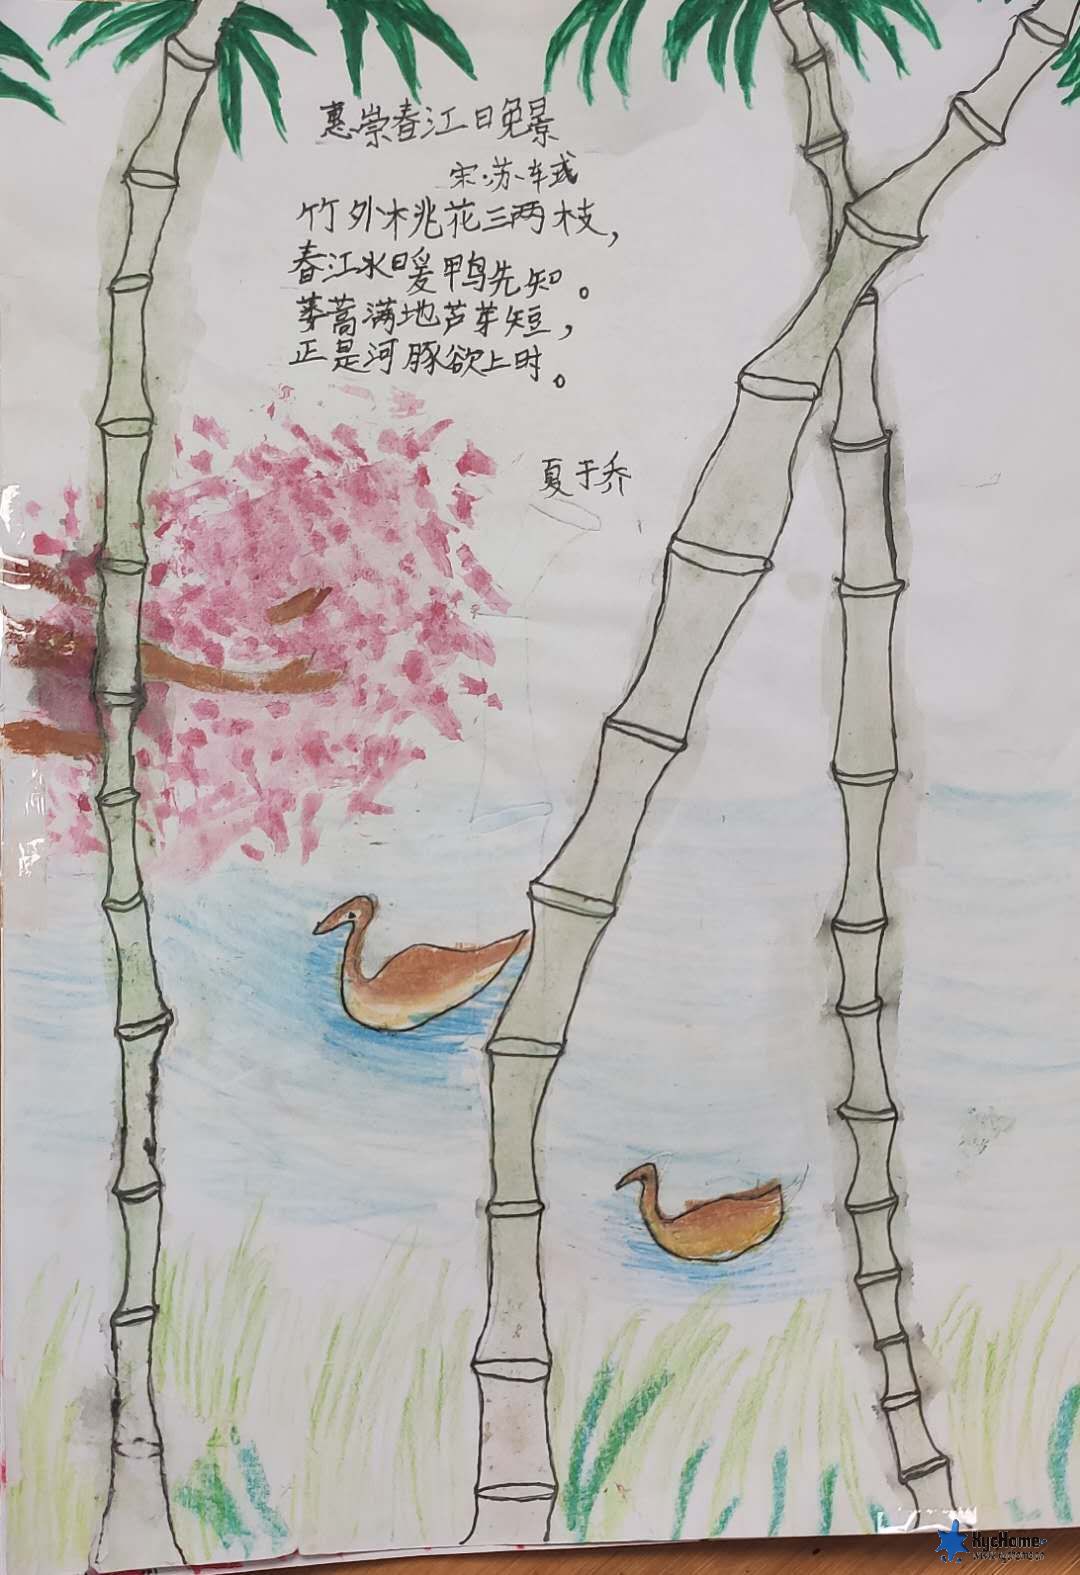 惠崇春江日晚景
宋·苏轼
竹外桃花三两枝，
春江水暖鸭先知。
蒌蒿满地芦芽短，
正是河豚欲上时。
夏于乔